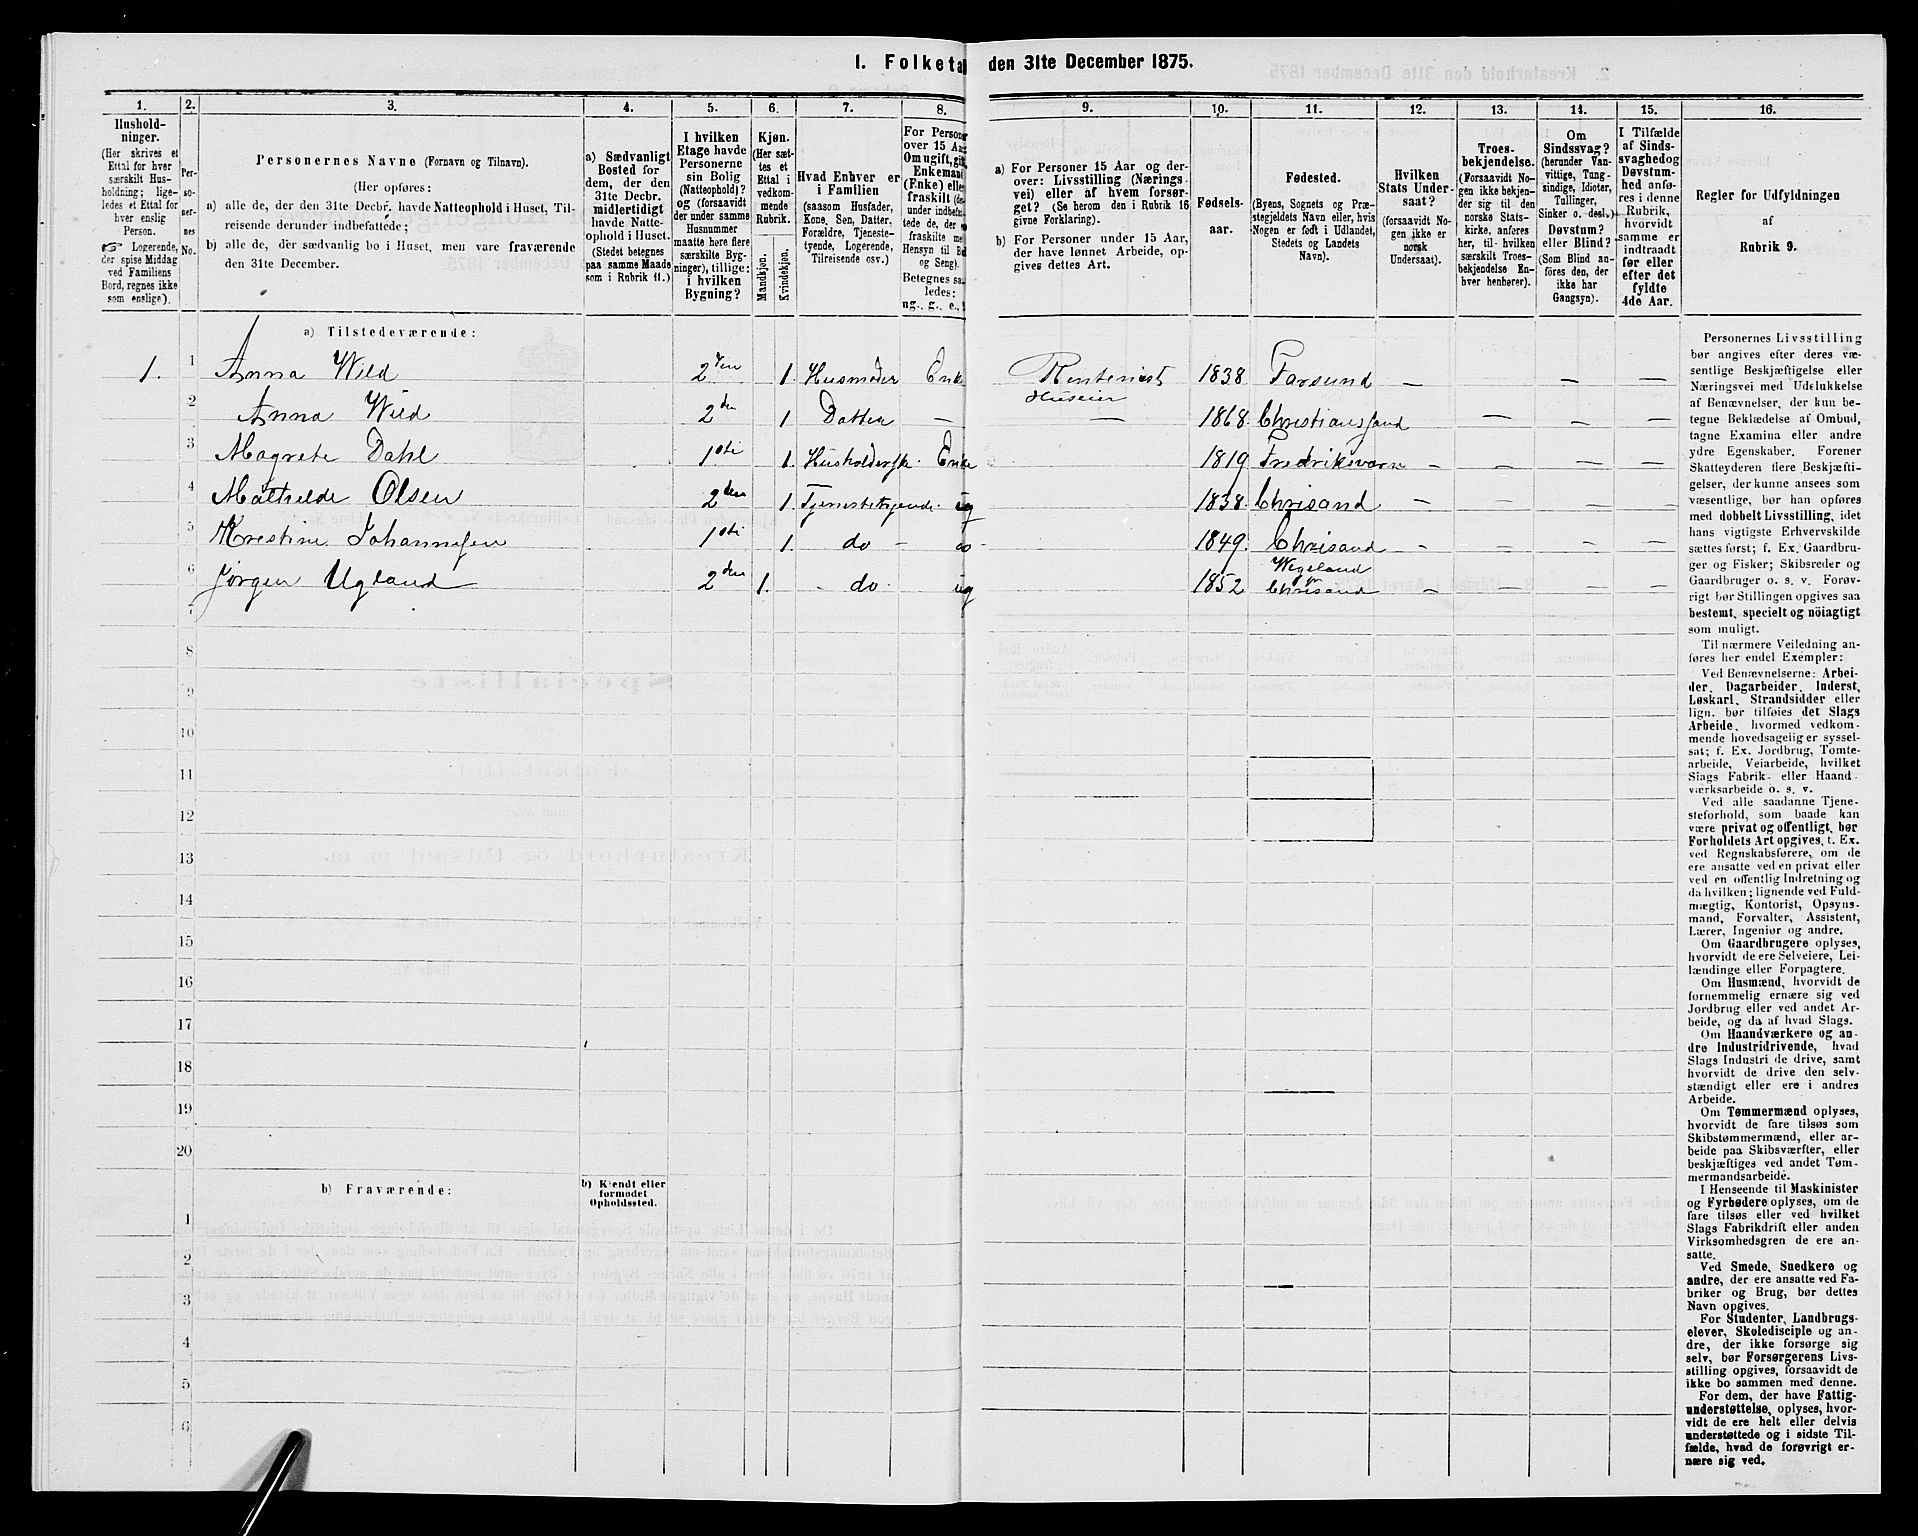 1. Folketal den 31te December 1875.
1. 2. 3. 4. 5. 6. 7. 8. 9. 10. 11. 12. 13. 14. 15. 16.
Hushold-
ninger.
(Her skrives et
Ettal for hver
særskilt Hus-
holdning; lige-
ledes et Ettal for
hver enslig
Person.
☞ Logerende,
der spise Middag
ved Familiens
Bord, regnes ikke
som enslige).
Per-
so-
ner-
nes
No.
Personernes Navne (Fornavn og Tilnavn).
(Her opføres:
a) alle de, der den 31te Decbr. havde Natteophold i Huset, Til-
reisende derunder indbefattede;
b) alle de, der sædvanlig bo i Huset, men vare fraværende
den 31te December.
a) Sædvanligt
Bosted for
dem, der den
31te Decbr.
midlertidigt
havde Natte-
ophold i Huset.
(Stedet betegnes
paa samme Maade
som i Rubrik 11.)
I hvilken
Etage havde
Personerne
sin Bolig
(Natteophold)?
og (forsaavidt
der under samme
Husnummer
maatte høre flere
særskilte Byg-
ninger), tillige:
i hvilken
Bygning?
Kjøn.
(Her sæt-
tes et
Ettal i
vedkom-
mende
Rubrik.
Mandkjøn.
Kvindekjøn.
Hvad Enhver er
i Familien
(saasom Husfader,
Kone, Søn, Datter,
Forældre, Tjeneste-
tyende, Logerende,
Tilreisende osv.)
For Person
over 15 Aar
Om ugift, gift,
Enkemand
(Enke) eller
fraskilt
under indbefat-
tede de, der
fraskilte med
Hensyn til Bord
og Seng).
Betegnes saa-
ledes:
ug., g., e.,
a) For Personer 15 Aar og der-
over: Livsstilling (Nærings-
vei) eller af hvem forsør-
get? (Se herom den i Rubrik 16
givne Forklaring).
b) For Personer under 15 Aar,
der have lønnet Arbeide, op-
gives dettes Art.
Fødsels-
aar.
Fødested.
(Byens, Sognets og Præ-
stegjeldets Navn eller, hvis
Nogen er født i Udlandet,
Stedets og Landets
Navn).
Hvilken
Stats Under-
saat?
(forsaavidt No-
gen ikke er
norsk
Undersaat).
Troes-
bekjendelse.
(Forsaavidt No-
gen ikke bekjen-
der sig til den
norske Stats-
kirke, anføres
her, til hvilken
særskilt Troes-
bekjendelse En-
hver henhører).
Om
Sindssvag?
(herunder Van-
vittige, Tung-
sindige, Idioter,
Tullinger,
Sinker o. desl.)
Døvstum?
eller Blind?
(Som Blind an-
føres den, der
ikke har
Gangsyn).
I Tilfælde
af Sinds-
svaghed og
Døvstum-
hed anfø-
res i denne
Rubrik,
hvorvidt
samme er
indtraadt
før eller
efter det
fyldte
4de Aar.
Regler for Udfyldningen
af
Rubrik 9.
a) Tilstedeværende:
1. 1 Anna Wild 2den 1. Husmoder Enke Rentenist Huseier 1838 Farsund — — —
2 Anna Wild 2den 1 Datter — — 1868. Christiansand — — —
3 Magrete Dahl 1ste 1. Husholderske. Enke 1819 Fredriksværn — — — —
4 Mathilde Olsen 2den 1 Tjenestetyende. ug 1838. Chrisand — — — —
5 Krestine Johannesen 1ste 1. do — do 1849. Chrisand — — — —
6 Jørgen Ugland 2den 1. do. ug 1852 Wegeland pr Chrisand — — — —
7
8
9
10
11
12
13
14
15
16
17
18
19
20
b) Fraværende:
b) Kjendt eller
formodet
Opholdssted.
1
2
3
4
5
6
Personernes Livsstilling
bør angives efter deres væ-
sentlige Beskjæftigelse eller
Næringsvei med Udelukkelse
af Benævnelser, der kun be-
tegne Beklædelse af Ombud,
tagne Examina eller andre
ydre Egenskaber. Forener
Skatteyderen flere Beskjæfti-
gelser, der kunne ansees som
væsentlige, bør han opføres
med dobbelt Livsstilling, idet
hans vigtigste Erhvervskilde
sættes først; f. Ex. Gaardbru-
ger og Fisker; Skibsreder og
Gaardbruger o. s. v. Forøv-
rigt bør Stillingen opgives saa
bestemt, specielt og nöiagtigt
som muligt.
Til nærmere Veiledning an-
føres her endel Exempler:
Ved Benævnelserne: Arbei-
der, Dagarbeider, Inderst,
Løskarl, Strandsidder eller
lign. bør tilføies det Slags
Arbeide, hvormed vedkom-
mende hovedsagelig er syssel-
sat; f. Ex. Jordbrug, Tomte-
arbeide, Veiarbeide, hvilket
Slags Fabrik- eller Haand-
værksarbeide o. s. v.
Ved alle saadanne Tjene-
steforhold, som baade kan
være privat og offentligt, bør
Forholdets Art opgives, f. Ex.
ved Regnskabsførere, om de
ere ansatte ved en privat eller
ved en offentlig Indretning og
da hvilken; lignende ved Fuld-
mægtig, Kontorist, Opsyns-
mand, Forvalter, Assistent,
Lærer, Ingeniør og andre.
Om Gaardbrugere oplyses,
hvorvidt de ere Selveiere, Lei-
lændinge eller Forpagtere.
Om Husmænd, hvorvidt de
fornemmelig ernære sig ved
Jordbrug eller ved andet Ar-
beide, og da af hvad Slags.
Om Haandværkere og an-
dre Industridrivende, hvad
Slags Industri de drive, samt
hvorvidt de drive den selv-
stændigt eller ere i andres
Arbeide.
Om Tømmermænd oplyses,
hvorvidt de fare tilsøs som
Skibstømmermænd, eller ar-
beide paa Skibsværfter, eller
beskjæftiges ved andet Tøm-
mermandsarbeide.
I Henseende til Maskinister
og Fyrbødere oplyses, om de
fare tilsøs eller ved hvilket
Slags Fabrikdrift eller anden
Virksomhedsgren de ere an-
satte.
Ved Smede, Snedkere og
andre, der ere ansatte ved Fa-
briker og Brug, bør dettes
Navn opgives.
For Studenter, Landbrugs-
elever, Skoledisciple og an-
dre, der ikke forsørge sig
selv, bør Forsørgerens Livs-
stilling opgives, forsaavidt de
ikke bo sammen med denne.
For dem, der have Fattig-
understøttelse, oplyses, hvor-
vidt de ere helt eller delvis
understøttede og i sidste Til-
fælde, hvad de forøvrigt er-
nære sig ved.